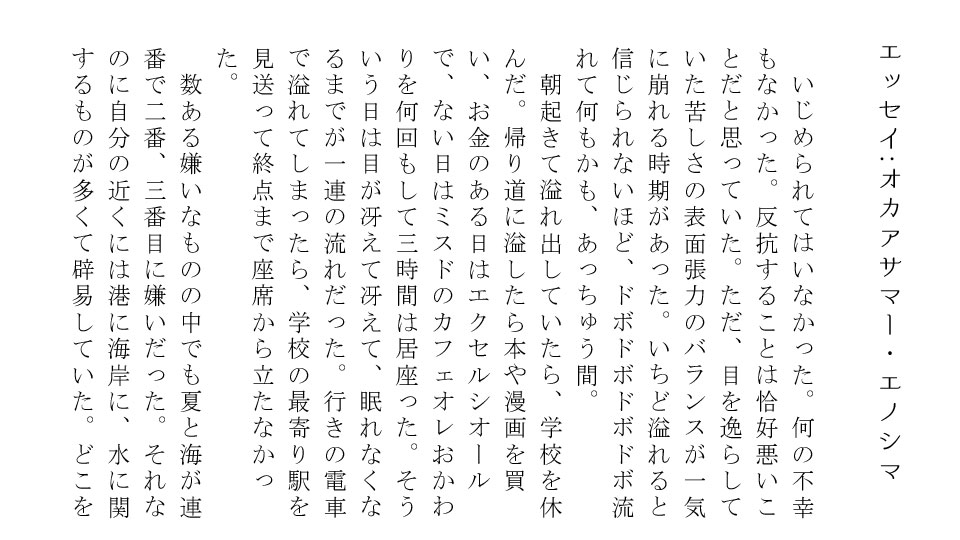 エッセイ:オカァサマー・エノシマ
いじめられてはいなかった。何の不幸
もなかった。反抗することは恰好悪いこ
とだと思っていた。ただ、目を逸らして
いた苦しさの表面張力のバランスが一気
に崩れる時期があった。いちど溢れると
信じられないほど、ドボドボドボドボ流
れて何もかも、あっちゅう間。
朝起きて溢れ出していたら、学校を休
んだ。帰り道に溢したら本や漫画を買
い、お金のある日はエクセルシオール
で、ない日はミスドのカフェオレおかわ
りを何回もして三時間は居座った。そう
いう日は目が冴えて冴えて、眠れなくな
るまでが一連の流れだった。行きの電車
で溢れてしまったら、学校の最寄り駅を
見送って終点まで座席から立たなかっ
た。
数ある嫌いなものの中でも夏と海が連
番で二番、三番目に嫌いだった。それな
のに自分の近くには港に海岸に、水に関
するものが多くて辟易していた。どこを